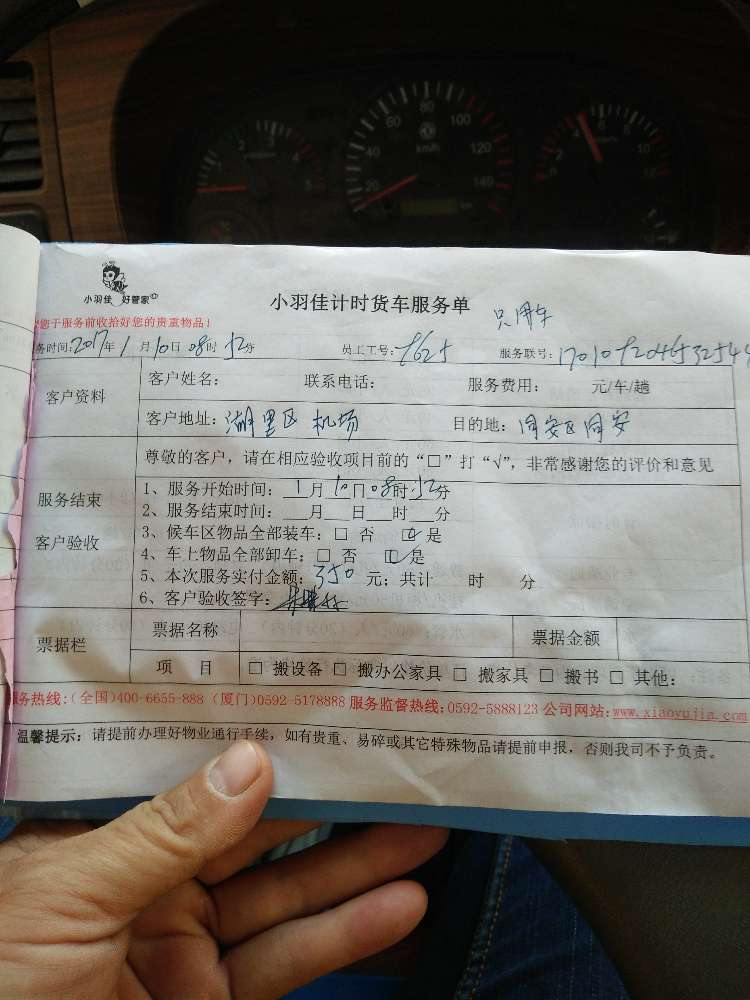 小羽佳 好管家
小羽佳计时货车服务单
只用车
您于服务前收拾好您的贵重物品！
务时间:2017年1月10日08时52分 员工工号: 服务联号:
客户资料
客户姓名： 联系电话： 服务费用： 元/车/趟
客户地址：湖里区 机场 目的地：同安区同安
服务结束
客户验收
尊敬的客户，请在相应验收项目前的“□”打“√”，非常感谢您的评价和意见
1、服务开始时间：1月10日08时52分
2、服务结束时间：__月__日__时__分
3、候车区物品全部装车：□ 否 ☑ 是
4、车上物品全部卸车：□ 否 ☑ 是
5、本次服务实付金额：350 元；共计 时 分
6、客户验收签字：
票据栏
票据名称 票据金额
项 目 □ 搬设备 □ 搬办公家具 □ 搬家具 □ 搬书 □ 其他：
服务热线:(全国)400-6655-888 (厦门)0592-5178888 服务监督热线:0592-5888123 公司网站:www.xiaoyujia.com
温馨提示：请提前办理好物业通行手续，如有贵重、易碎或其它特殊物品请提前申报，否则我司不予负责。
20 40 60 80 100 120 140
km/h